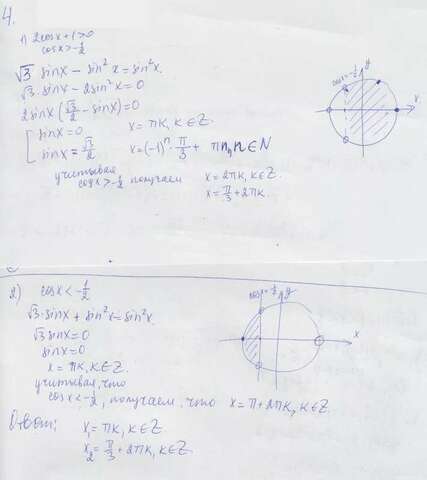 4.
1) 2cosx+1>0
cosx>-1/2
cosx=-1/2
y
x
√3 sinx - sin²x = sin²x.
√3 · sinx - 2sin²x = 0
2sinx(√3/2 - sinx) = 0
[ sinx = 0 x = πk, k∈Z.
sinx = √3/2 x = (-1)ⁿ · π/3 + πn, n∈N
учитывая
cosx>-1/2 получаем x = 2πk, k∈Z.
x = π/3 + 2πk.
2) cosx < -1/2
cosx=-1/2
y
x
√3·sinx + sin²x = sin²x.
√3 sinx = 0
sinx = 0
x = πk, k∈Z.
учитывая, что
cosx<-1/2, получаем, что x = π + 2πk, k∈Z.
Ответ: x₁ = πk, k∈Z.
x₂ = π/3 + 2πk, k∈Z.